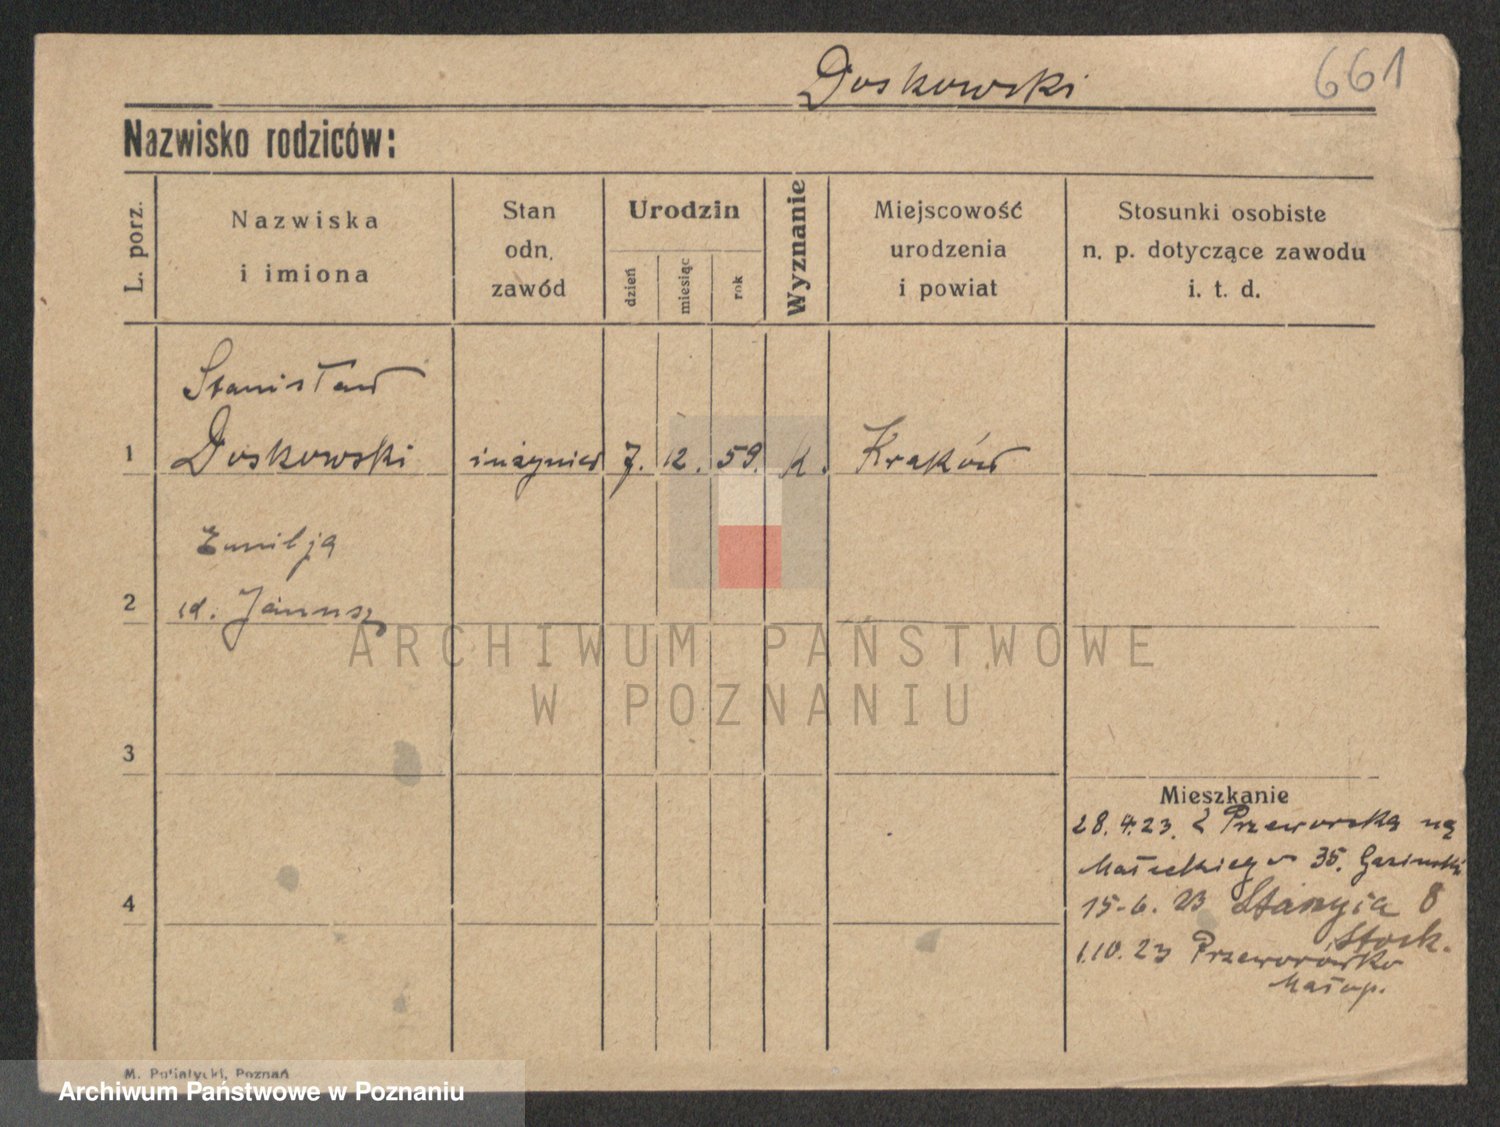 Doskowski
661
Nazwisko rodziców:
L. porz.
Nazwiska
i imiona
Stan
odn.
zawód
Urodzin
dzień
miesiąc
rok
Wyznanie
Miejscowość
urodzenia
i powiat
Stosunki osobiste
n. p. dotyczące zawodu
i. t. d.
Stanisław
1 Doskowski inżynier 7. 12. 59. k. Kraków
Emilja
2 id. Janusz
ARCHIWUM PAŃSTWOWE
W POZNANIU
3
Mieszkanie
28. 4. 23. Z Przeworska na
Małeckiego 35.
4
15-6. 23 8
Stock.
1.10. 23
Małop.
M. Putiatycki, Poznań
Archiwum Państwowe w Poznaniu